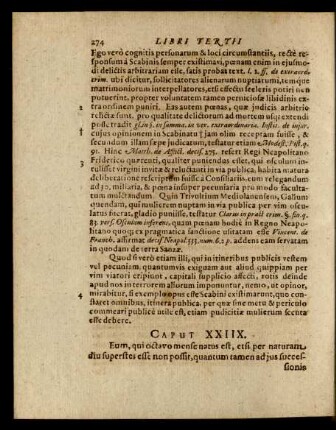 274 LIBRI TERTII
Ego verò cognitis personarum & loci circumstantiis, rectè res-
ponsum à Scabinis semper existimavi, pœnam enim in ejusmo-
di delictis arbitrariam esse, satis probat text. l. 2. ff. de extraord.
crim. ubi dicitur, sollicitatores alienarum nuptiarum, itemque
matrimoniorum interpellatores, etsi effectu sceleris potiri non
potuerint, propter voluntatem tamen perniciosæ libidinis ex-
traordinem puniri. Eas autem pœnas, quæ judicis arbitrio
relictæ sunt, pro qualitate delictorum ad mortem usque extendi
posse tradit
cujus opinionem in Scabinatu † jam olim receptam fuisse, &
secundum illam sepe judicatum, testatur etiam
91. Hinc 2 Matth. de Afflict. decis. 275. refert Regi Neapolitano
Friderico quærenti, qualiter puniendus esset, qui osculum in-
tulisset virgini invitæ & reluctanti in via publica, habita matura
deliberatione rescriptum fuisse à Consiliariis, eum relegandum
ad 50. miliaria, & pœna insuper pecuniaria pro modo faculta-
tum mulctandum. Quin Trivoltium Mediolanensem, Gallum
quendam, qui mulierem nuptam in via publica per vim oscu-
latus fuerat, gladio puniisse, testatur Clarus in pract. crim. §. fin. q.
83. vers. Osculum inferens, quam pœnam hodie in Regno Neapo-
litano quoque ex pragmatica sanctione usitatam esse Vincent. de
Franch. affirmat decis. Neapol. 333. num. 6. 2 p. addens eam servatam
in quodam de terra Sanæ.
Quod si verò etiam illi, qui in itineribus publicis vestem
vel pecuniam, quantumvis exiguam aut aliud quippiam per
vim viatori eripiunt, capitali supplicio affecti, postea rotis de-
apud nos in terrorem aliorum imponuntur, nemo, ut opinor,
mirabitur, si exemplo opus esse Scabini existimarunt, quo con-
staret omnibus, itinera publica, per quæ sine metu & periculo
commeari publicè utile est, etiam pudicitiæ mulierum secura
esse debere.
CAPUT XXIIX.
Eum, qui octavo mense natus est, etsi per naturam
diu superstes esse non possit, quantum tamen ad jus succes-
sionis